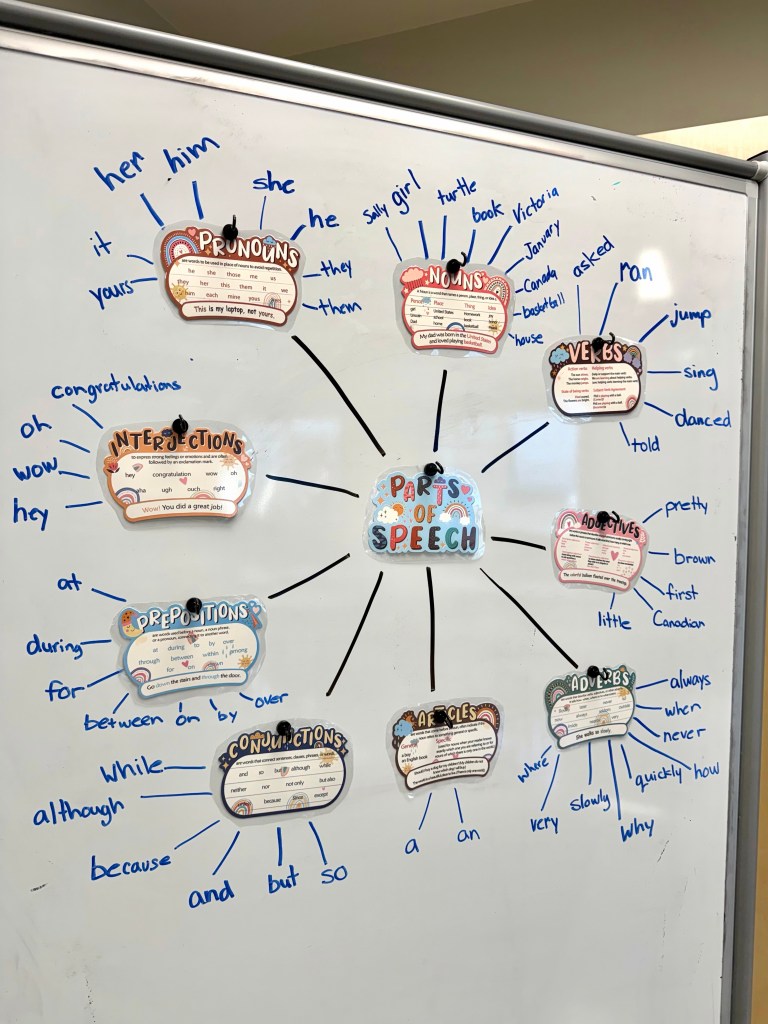 PARTS
OF
SPEECH
her
him
she
he
it
they
yours
them
PRONOUNS
are words to be used in place of nouns to avoid repetition.
he she those me us
they her this them it we
him each mine yours
This is my laptop, not yours.
Sally
girl
turtle
book
Victoria
January
Canada
basketball
house
NOUNS
Place Thing
United States homework
school book
home basketball
My dad was born in the United States
and loved playing basketball.
asked
ran
jump
sing
danced
told
VERBS
Action verbs Helping verbs
congratulations
oh
wow
hey
INTERJECTIONS
to express strong feelings or emotions and are often
followed by an exclamation mark.
hey congratulation wow oh
ugh ouch right
Wow! You did a great job!
pretty
brown
first
Canadian
little
ADJECTIVES
The colorful balloon floated over the
at
during
for
between
on
by
over
PREPOSITIONS
at during to by over
through between within among
for on down
Go down the stairs and through the door.
always
when
never
how
quickly
why
slowly
very
where
ADVERBS
She walks so slowly.
while
although
because
and
but
so
CONJUNCTIONS
are words that connect sentences, clauses, phrases, & words.
and so but although while
neither nor not only but also
because since except
a
an
ARTICLES